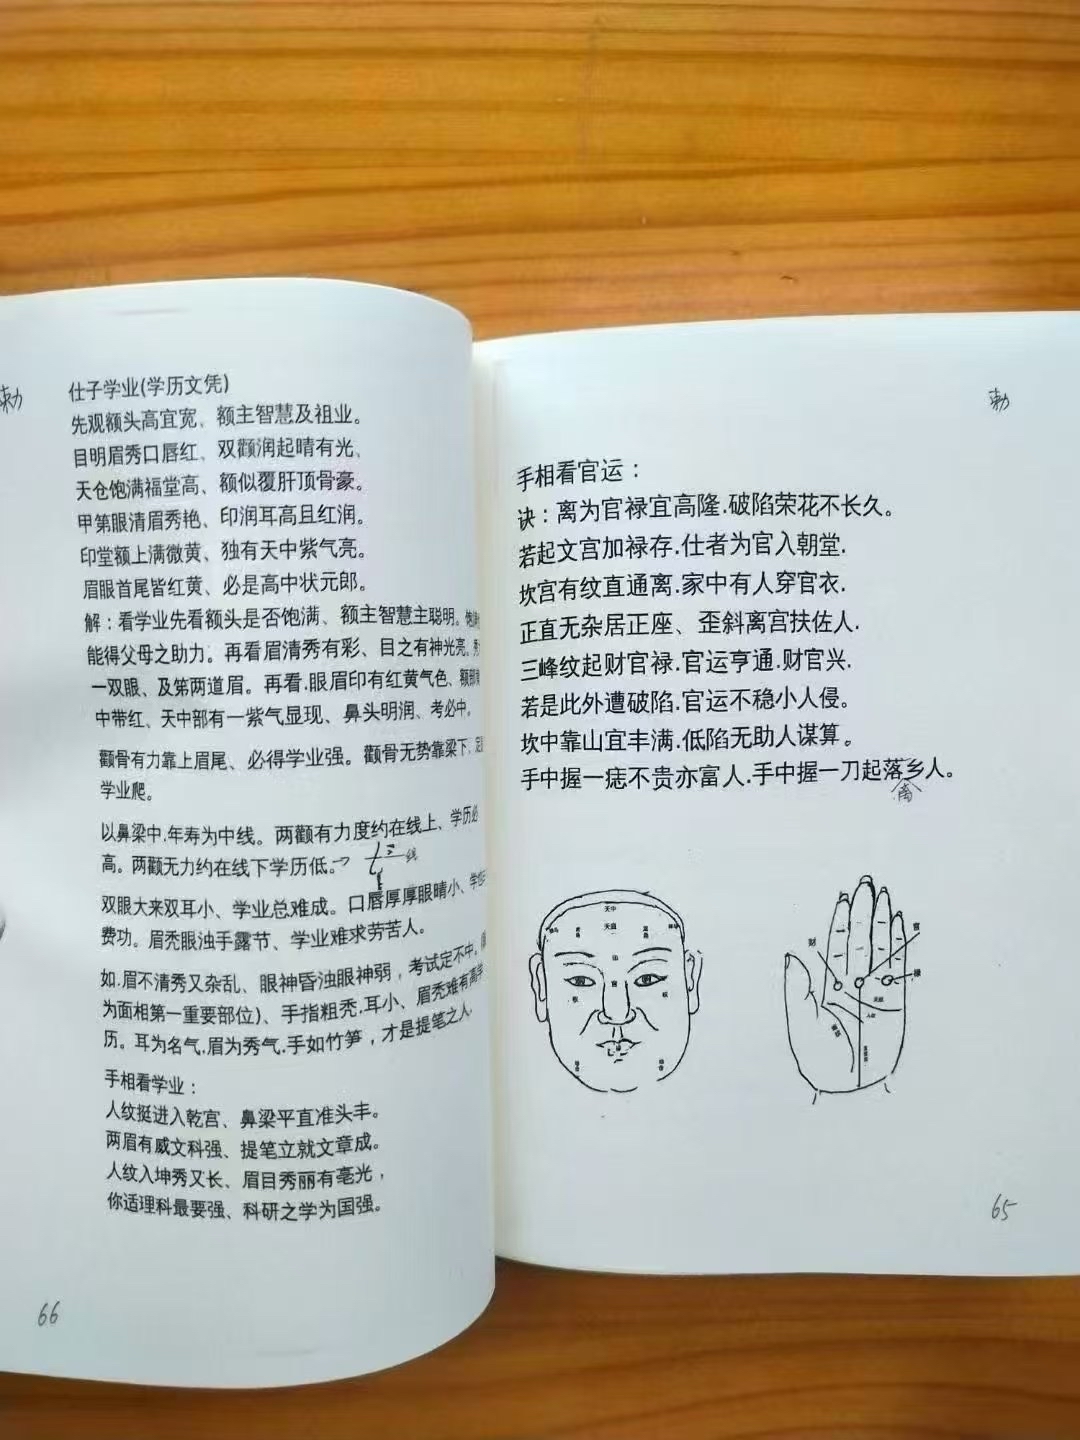 勅
仕子学业(学历文凭)
先观额头高宜宽、额主智慧及祖业。
目明眉秀口唇红、双颧润起晴有光、
天仓饱满福堂高、额似覆肝顶骨豪。
甲第眼清眉秀艳、印润耳高且红润。
印堂额上满微黄、独有天中紫气亮。
眉眼首尾皆红黄、必是高中状元郎。
解：看学业先看额头是否饱满、额主智慧主聪明。饱
能得父母之助力。再看眉清秀有彩、目之有神光亮。
一双眼、及第两道眉。再看.眼眉印有红黄气色、额部
中带红、天中部有一紫气显现、鼻头明润、考必中。
颧骨有力靠上眉尾、必得学业强。颧骨无势靠梁下、定
学业爬。
以鼻梁中.年寿为中线。两颧有力度约在线上、学历必
高。两颧无力约在线下学历低。
线
双眼大来双耳小、学业总难成。口唇厚厚眼睛小、学也
费功。眉秃眼浊手露节、学业难求劳苦人。
如.眉不清秀又杂乱、眼神昏浊眼神弱，考试定不中。
为面相第一重要部位)、手指粗秃.耳小、眉秃难有高学
历。耳为名气.眉为秀气.手如竹笋，才是提笔之人.
手相看学业：
人纹挺进入乾宫、鼻梁平直准头丰。
两眉有威文科强、提笔立就文章成。
人纹入坤秀又长、眉目秀丽有亳光，
你适理科最要强、科研之学为国强。
66
勅
手相看官运：
诀：离为官禄宜高隆.破陷荣花不长久。
若起文宫加禄存.仕者为官入朝堂.
坎宫有纹直通离.家中有人穿官衣.
正直无杂居正座、歪斜离宫扶佐人.
三峰纹起财官禄.官运亨通.财官兴.
若是此外遭破陷.官运不稳小人侵。
坎中靠山宜丰满.低陷无助人谋算。
手中握一痣不贵亦富人.手中握一刀起落乡人。
离
天中
天庭
印
官
权
权
财
官
禄
天纹
人纹
地纹
65